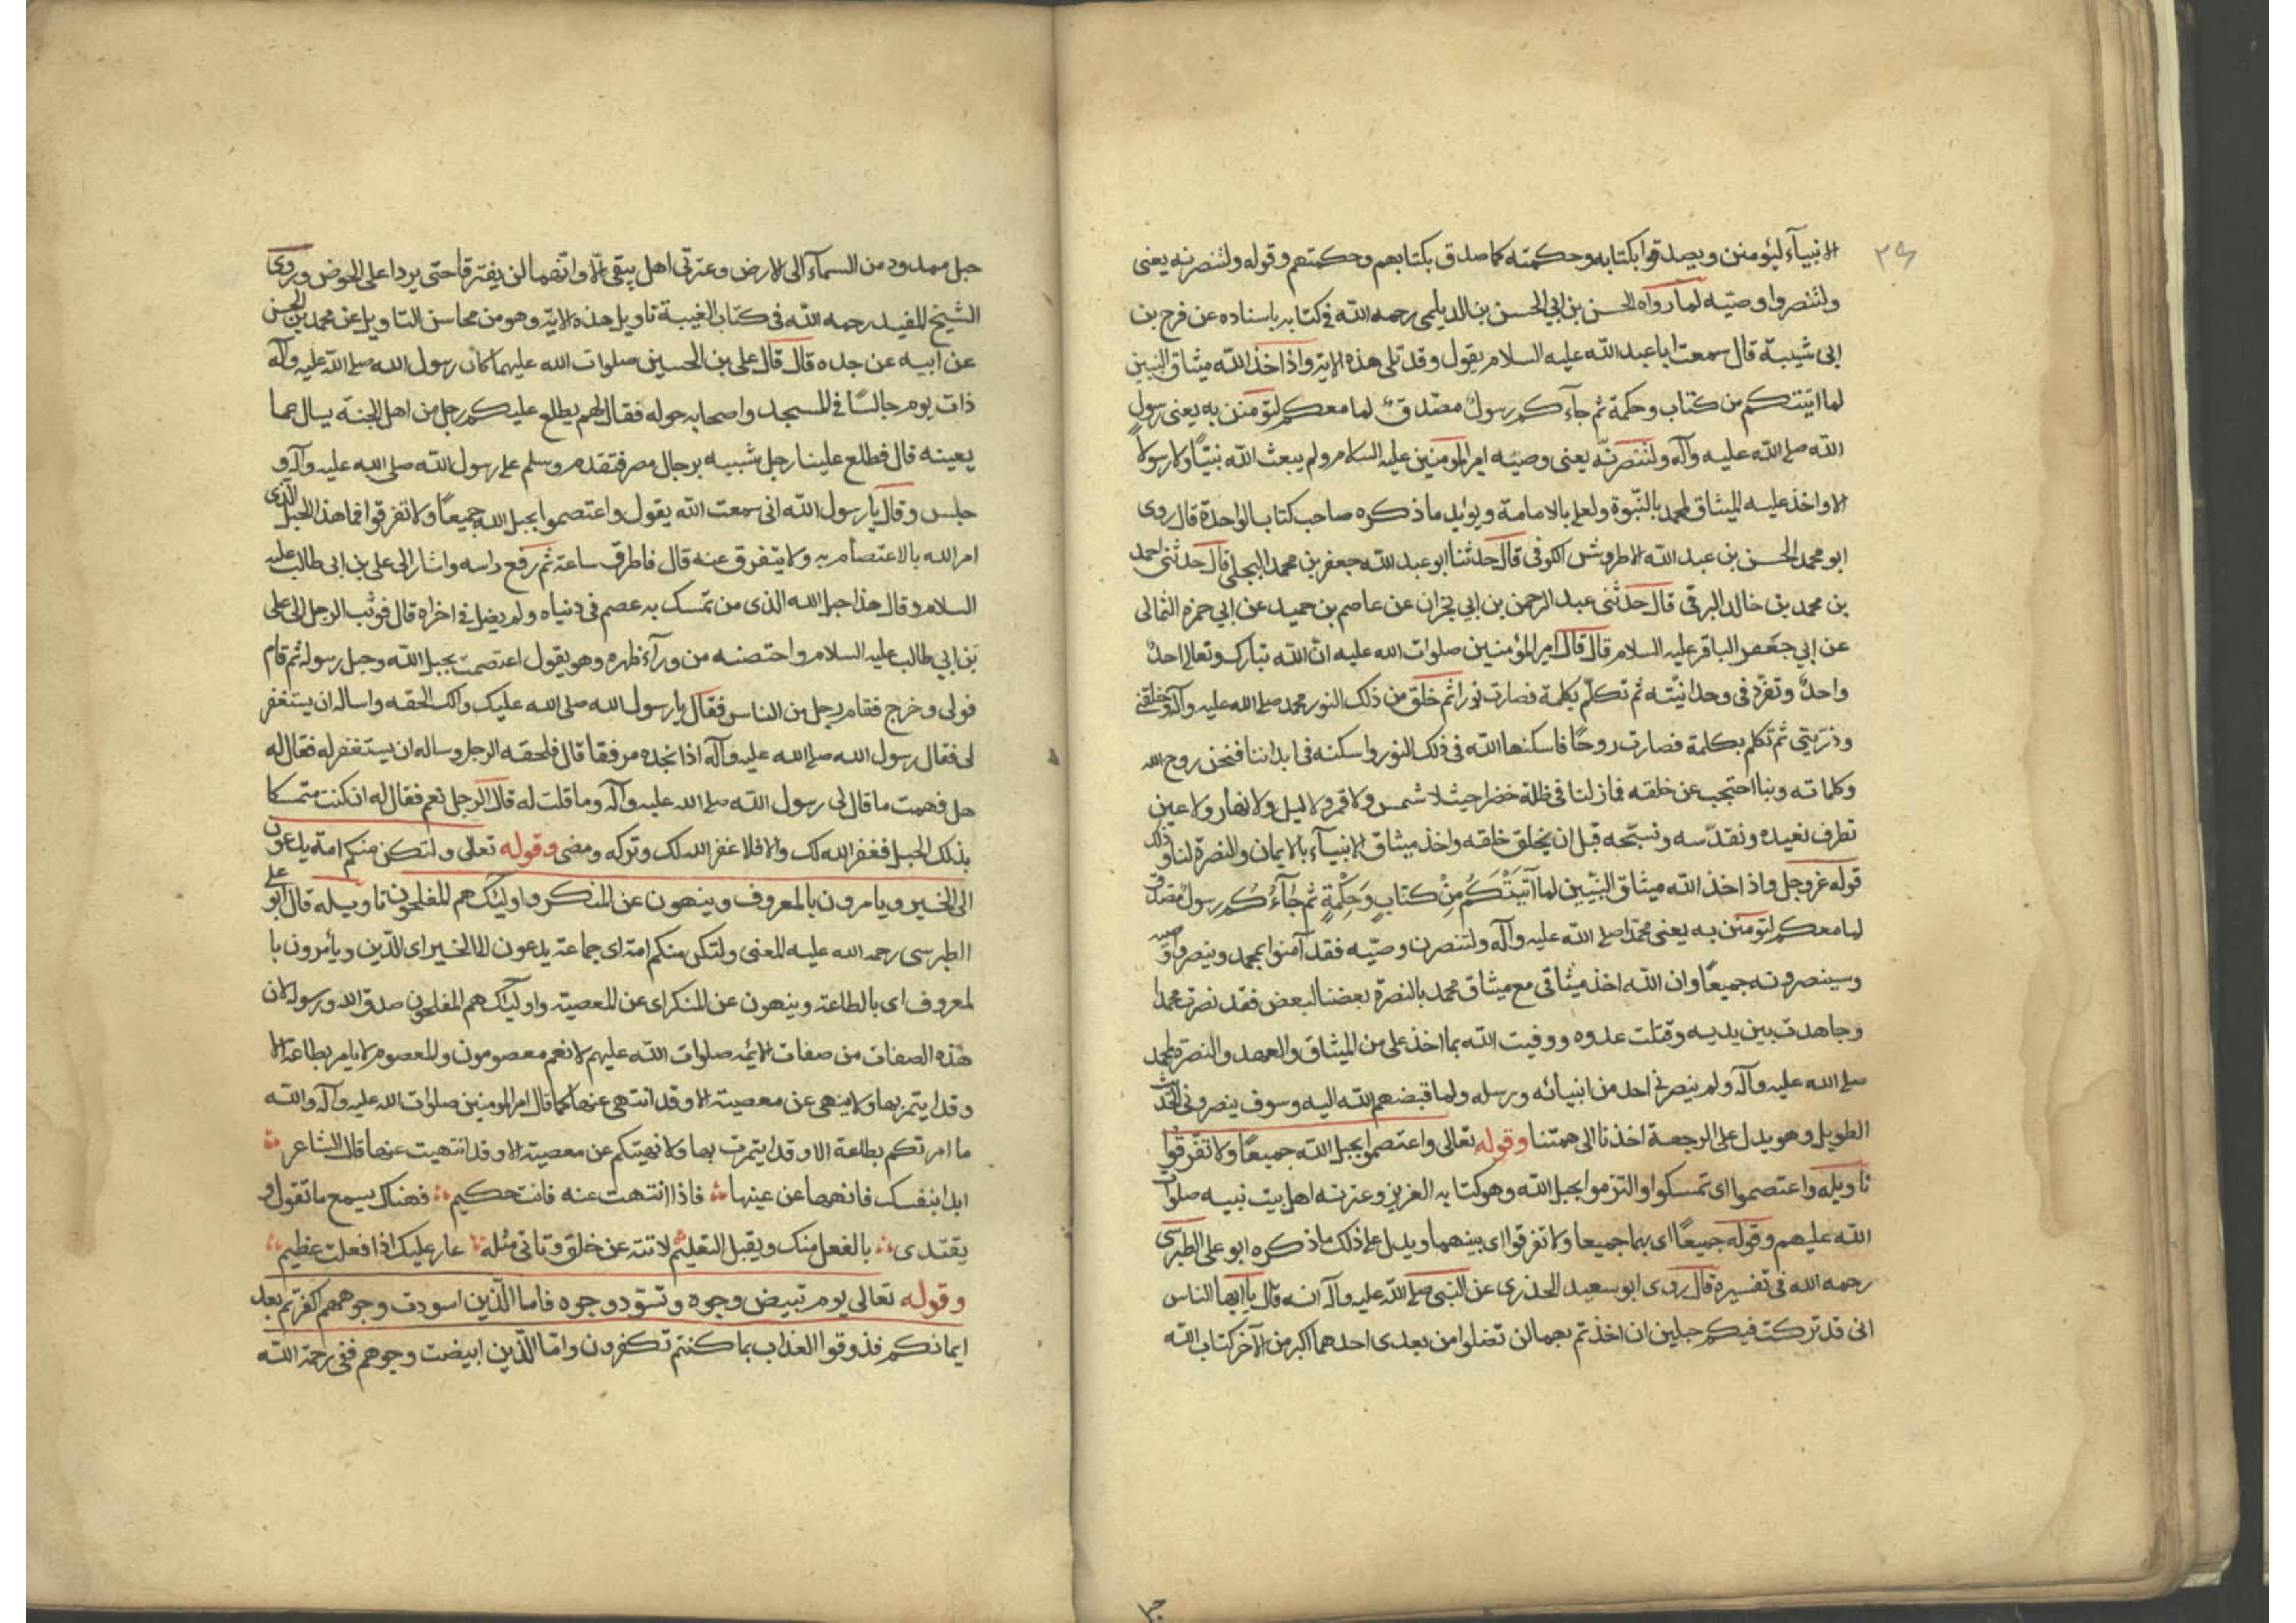 ٣٩
الانبيآء ليؤمنن ويصدقوا بكتابه وحكمته كما صدق بكتابهم وحكمتهم وقوله ولتنصرنه يعنى
ولتنصروا وصيّه لما رواه الحسن بن ابي الحسن بن الديلمى رحمه الله فى كتابه باسناده عن فرج بن
ابى شيبة قال سمعت ابا عبد الله عليه السلام يقول وقد تلى هذه الاية واذ اخذ الله ميثاق النبيين
لما اتيتكم من كتاب وحكمة ثم جآءكم رسولٌ مصدّقٌ لما معكم لتؤمنن به يعنى رسول
الله صلى الله عليه وآله ولتنصرنّه يعنى وصيّه امير المؤمنين عليه السلام ولم يبعث الله نبيّاً ولا رسولا
الا واخذ عليه الميثاق لمحمد بالنّبوة ولعلى بالامامة ويؤيد ما ذكره صاحب كتاب الواحدة قال روى
ابو محمد الحسن بن عبد الله الاطروش الكوفى قال حدثنا ابو عبد الله جعفر بن محمد البجلى قال حدثنى احمد
بن محمد بن خالد البرقى قال حدثنى عبد الرحمن بن ابي نجران عن عاصم بن حميد عن ابي حمزه الثمالى
عن ابي جعفر الباقر عليه السلام قال قال امير المؤمنين صلوات الله عليه ان الله تبارك وتعالى احدٌ
واحدٌ وتفرّد فى وحدانيّته ثم تكلّم بكلمة فصارت نورا ثم خلق من ذلك النور محمد صلى الله عليه وآله وخلقنى
وذرّيتي ثم تكلم بكلمة فصارت روحًا فاسكنها الله فى ذلك النور واسكنه فى ابداننا فنحن روح الله
وكلماته وبنا احتجب عن خلقه فمازلنا فى ظلة خضرا حيث لا شمس ولا قمر ولا ليل ولا نهار ولا عين
تطرف نعبده ونقدّسه ونسبّحه قبل ان يخلق خلقه واخذ ميثاق الانبيآء بالايمان والنصرة لنا وذلك
قوله عز وجل واذ اخذ الله ميثاق النبّيين لما اَتَيْتُكُمْ مِنْ كتابٍ وَحِكْمَةٍ ثم جآءَكُم رسولٌ مصدق
لما معكم لتؤمنّن به يعنى محمّدا صلى الله عليه وآله ولتنصرن وصيّه فقد آمنوا بمحمد وينصروا وصيه
وسينصرونه جميعًا وان الله اخذ ميثاقى مع ميثاق محمد بالنصرة بعضنا لبعض فقد نصرت محمدا
وجاهدت بين يديه وقتلت عدوه ووفيت الله بما اخذ على من الميثاق والعهد والنصرة لمحمد
صلى الله عليه وآله ولم ينصرنى احد من انبيائه ورسله ولما قبضهم الله اليه وسوف ينصرونى الحديث
الطويل وهو يدل على الرجعة اخذنا الى همتنا وقوله تعالى واعتصموا بحبل الله جميعًا ولا تفرّقوا
تاويله واعتصموا اى تمسكوا والتزموا بحبل الله وهو كتابه العزيز وعترته اهل بيت نبيه صلوات
الله عليهم وقوله جميعًا اى بهما جميعا ولا تفرقوا اى بينهما ويدل على ذلك ما ذكره ابو على الطبرسى
رحمه الله فى تفسيرة قال روى ابو سعيد الخدرى عن النبى صلى الله عليه وآله انه قال يا ايها الناس
انى قد تركت فيكم حبلين ان اخذتم بهما لن تضلوا من بعدى احدهما اكبر من الآخر كتاب الله
حبل ممدود من السمآء الى الارض وعترتى اهل بيتى الّا وانّهما لن يفترقا حتى يردا على الحوض وروى
الشيخ المفيد رحمه الله فى كتاب الغيبة تاويل هذه الاية وهو من محاسن التاويل عن محمد بن الحسن
عن ابيه عن جده قال قال على بن الحسين صلوات الله عليهما كان رسول الله صلى الله عليه وآله
ذات يوم جالسًا فى المسجد واصحابه حوله فقال لهم يطلع عليكم رجل من اهل الجنة يسال عما
يعينه قال فطلع علينا رجل شبيه برجال مصر فتقدم وسلم على رسول الله صلى الله عليه وآله و
جلس وقال يا رسول الله انى سمعت الله يقول واعتصموا بحبل الله جميعًا ولا تفرقوا فما هذا الحبل الّذى
امر الله بالاعتصام به ولا يتفرق عنه قال فاطرق ساعة ثم رفع راسه واشار الى على بن ابى طالب عليه
السلام وقال هذا حبل الله الذى من تمسك به عصم فى دنياه ولم يضل فى اخراه قال فوثب الرجل الى على
بن ابي طالب عليه السلام واحتضنه من ورآء ظهره وهو يقول اعتصمت بحبل الله وحبل رسوله ثم قام
فولى وخرج فقام رجل من الناس فقال يا رسول الله صلى الله عليك وآلك الحقه واساله ان يستغفر
لى فقال رسول الله صلى الله عليه وآله اذا تجده مرفقا قال فلحقه الرجل وساله ان يستغفر له فقال له
هل فهمت ما قال لى رسول الله صلى الله عليه وآله وما قلت له قال الرجل نعم فقال له ان كنت متمسكا
بذلك الحبل فغفر الله لك والا فلا غفر الله لك وتركه ومضى وقوله تعالى ولتكن منكم امة يدعون
الى الخير ويامرون بالمعروف وينهون عن المنكر واوليئك هم المفلحون تاويله قال ابو على
الطبرسى رحمه الله عليه المعنى ولتكن منكم امة اى جماعة يدعون الى الخير اى الدّين ويأمرون با
لمعروف اى بالطاعة وينهون عن المنكر اى عن المعصية واولئيك هم المفلحون صدق الله ورسوله لان
هذه الصفات من صفات الائمة صلوات الله عليهم لانهم معصومون والمعصوم لا يامر بطاعة الا
وقد ايتمر بها ولا ينهى عن معصية الا وقد انتهى عنها كما قال امير المومنين صلوات الله عليه وآله والله
ما امرتكم بطاعة الا وقد ايتمرت بها ولا نهيتكم عن معصية الا وقد انتهيت عنها قال الشاعر
ابدا بنفسك فانهها عن عيبها فاذا انتهت عنه فانت حكيم فهناك يسمع ما تقول و
يقتدى بالفعل منك ويقبل التعليم لا تنه عن خلق وتاتى مثله عار عليك اذا فعلت عظيم
وقوله تعالى يوم تبيض وجوه وتسوّد وجوه فاما الّذين اسودت وجوههم اكفرتم بعد
ايمانكم فذوقوا العذاب بما كنتم تكفرون وامّا الّذين ابيضت وجوههم ففى رحمة الله